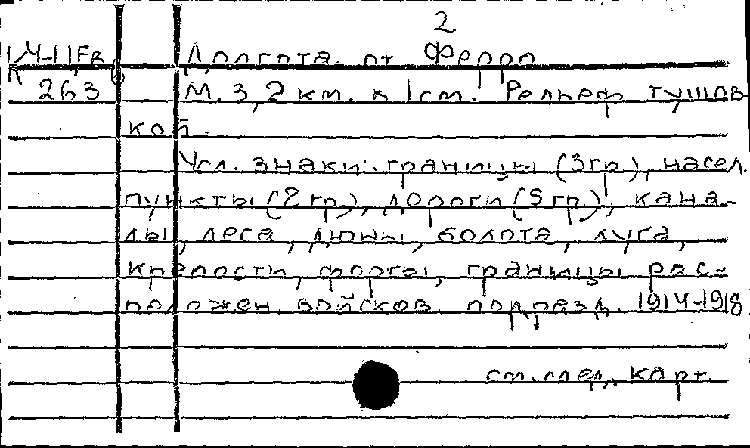 2
Долгота от Ферро
263 М. 3,2 км. к 1 см. Рельеф тушев-
кой.
Усл. знаки: границы (3 гр), насел.
пункты (2 гр), дороги (5 гр), кана-
лы, леса, дюны, болота, луга,
крепости, форты, границы рас-
положен. войсков. подразд. 1914-1918
см. след. карт.